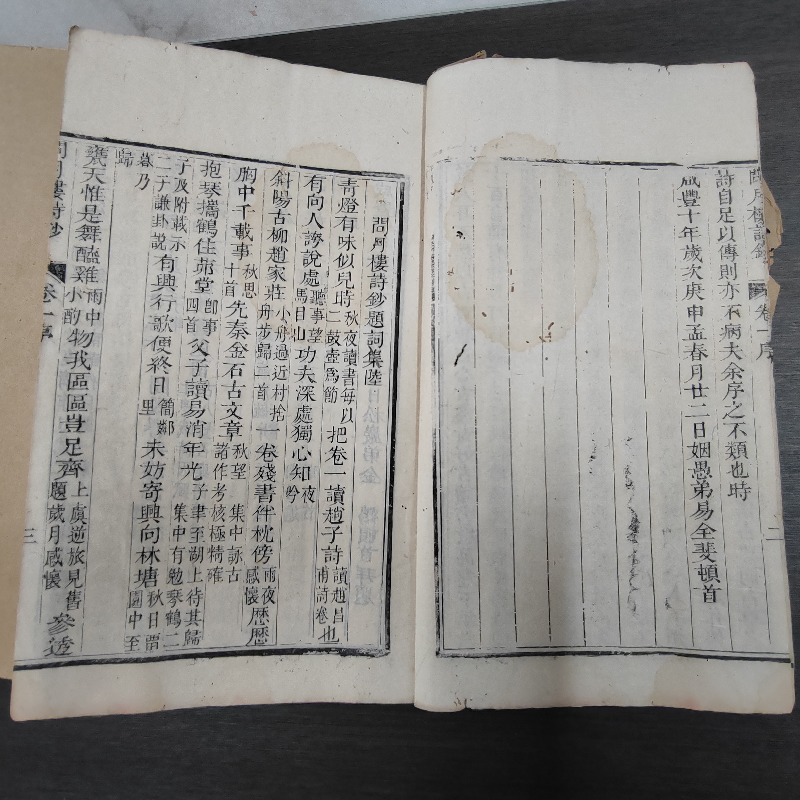 詩自足以傳則亦不病夫余序之不類也時
咸豐十年歲次庚申孟春月廿二日姻愚弟易全斐頓首
卷一序
二
問月樓詩鈔題詞集陸
青燈有味似兒時秋夜讀書每以二鼓盡為節把卷一讀趙子詩讀趙昌甫詩卷也
有向人誇說處聽事望馬目山功夫深處獨心知夜吟
斜陽古柳趙家莊小舟過近村捨舟步歸二首一卷殘書伴枕傍雨夜感懷歷歷
胸中千載事秋思十首先秦金石古文章秋望 集中詠古諸作考核極精確
抱琴攜鶴住茆堂即事四首父子讀易消年光子聿至湖上待其歸 集中有勉琴鶴二
子及附載示二子謙卦說有興行歌便終日簡鄰里未妨寄興向林塘秋日留園中至
暮乃歸
甕天惟是舞醯雞雨中小酌物我區區豈足齊上虞逆旅見舊題歲月感懷參透
問月樓詩鈔
卷一序
三